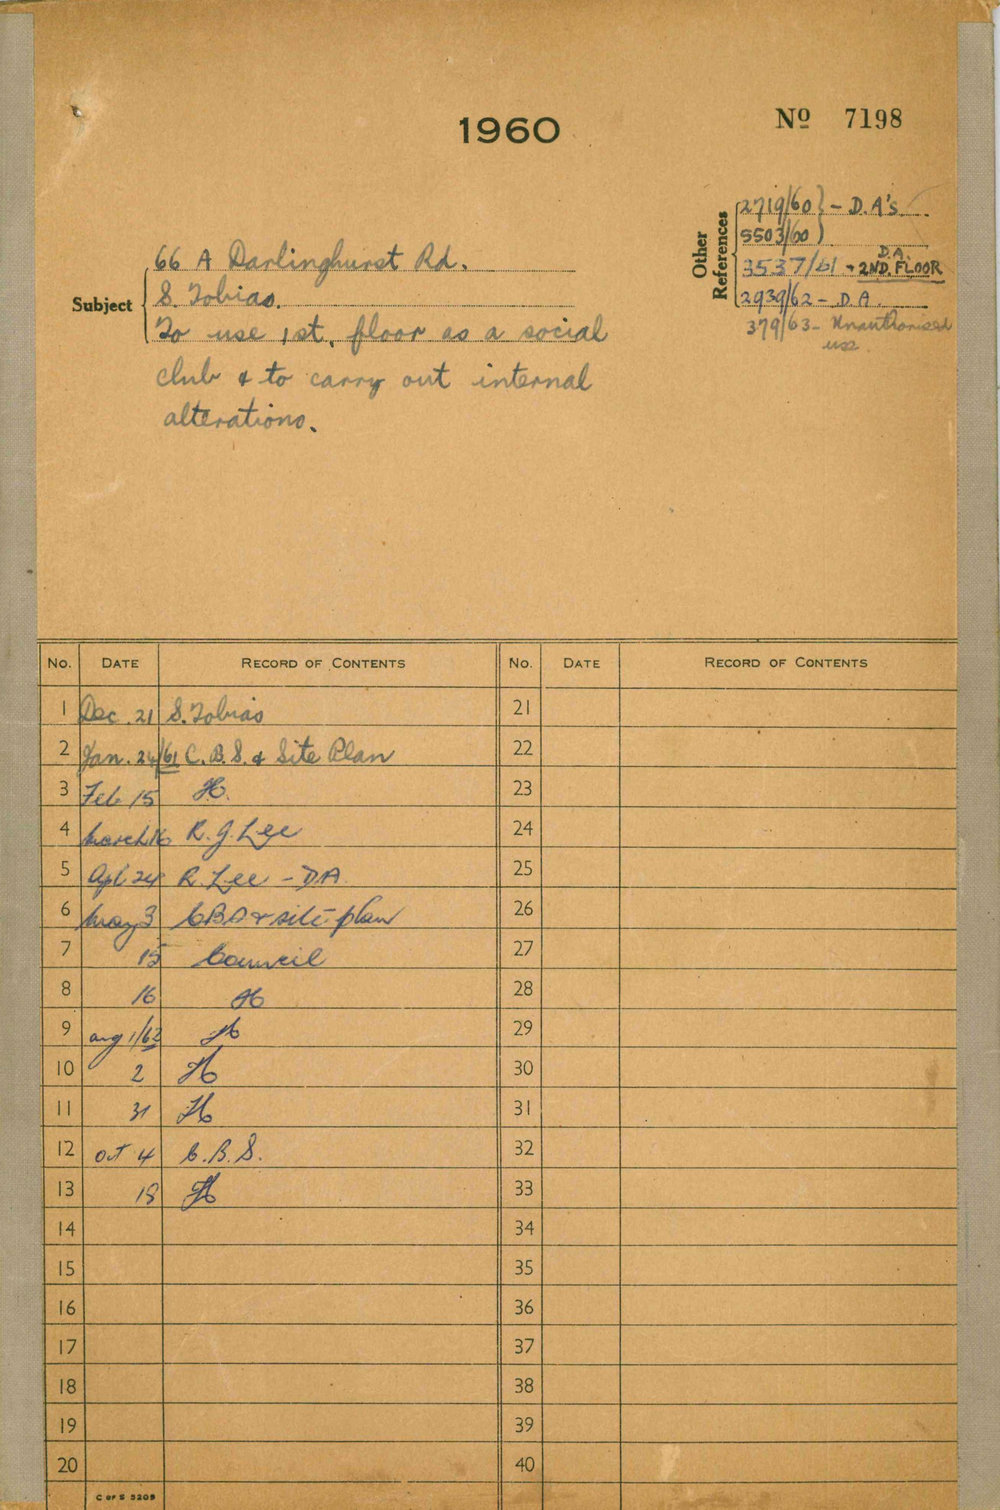 1960
Nº 7198
Other References
2719/60 } - D.A's
5503/60 )
3537/61 - D.A. 2ND. FLOOR
2939/62 - D A.
379/63 - Unauthorised
use.
Subject
66 A Darlinghurst Rd.
S. Tobias.
To use 1st. floor as a social
club & to carry out internal
alterations.
No. DATE RECORD OF CONTENTS No. DATE RECORD OF CONTENTS
1 Dec. 21 S. Tobias 21
2 Jan. 24/61 C.B.S. & Site Plan 22
3 Feb 15 H. 23
4 March 16 R. J. Lee 24
5 Apl 24 R. Lee - DA. 25
6 May 3 CBS & site plan 26
7 15 Council 27
8 16 H 28
9 Aug 1/62 H 29
10 2 H 30
11 31 H 31
12 Oct 4 C.B.S. 32
13 18 H 33
14 34
15 35
16 36
17 37
18 38
19 39
20 40
C OF S 5205